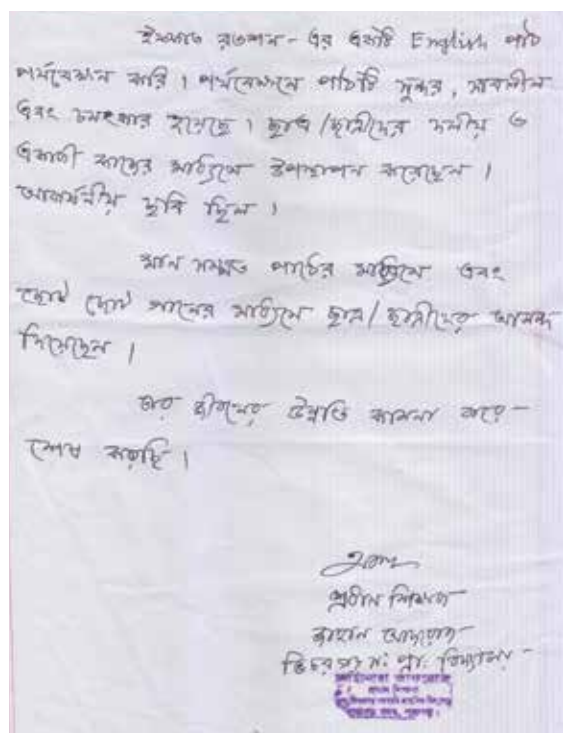 ইফফাত রওশন - এর একটি English পাঠ
পর্যবেক্ষন করি। পর্যবেক্ষনে পাঠটি সুন্দর, সাবলীল
এবং চমৎকার হয়েছে। ছাত্র/ছাত্রীদের দলীয় ও
একাকী কাজের মাধ্যমে উপস্থাপন করেছেন।
আকর্ষনীয় ছবি ছিল।
মান সম্মত পাঠের মাধ্যমে এবং
ছোট ছোট গানের মাধ্যমে ছাত্র/ছাত্রীদের আনন্দ
দিয়েছেন।
তার জীবনের উন্নতি কামনা করে -
শেষ করছি।
প্রধান শিক্ষক
প্রা: বিদ্যালয়
প্রধান শিক্ষক